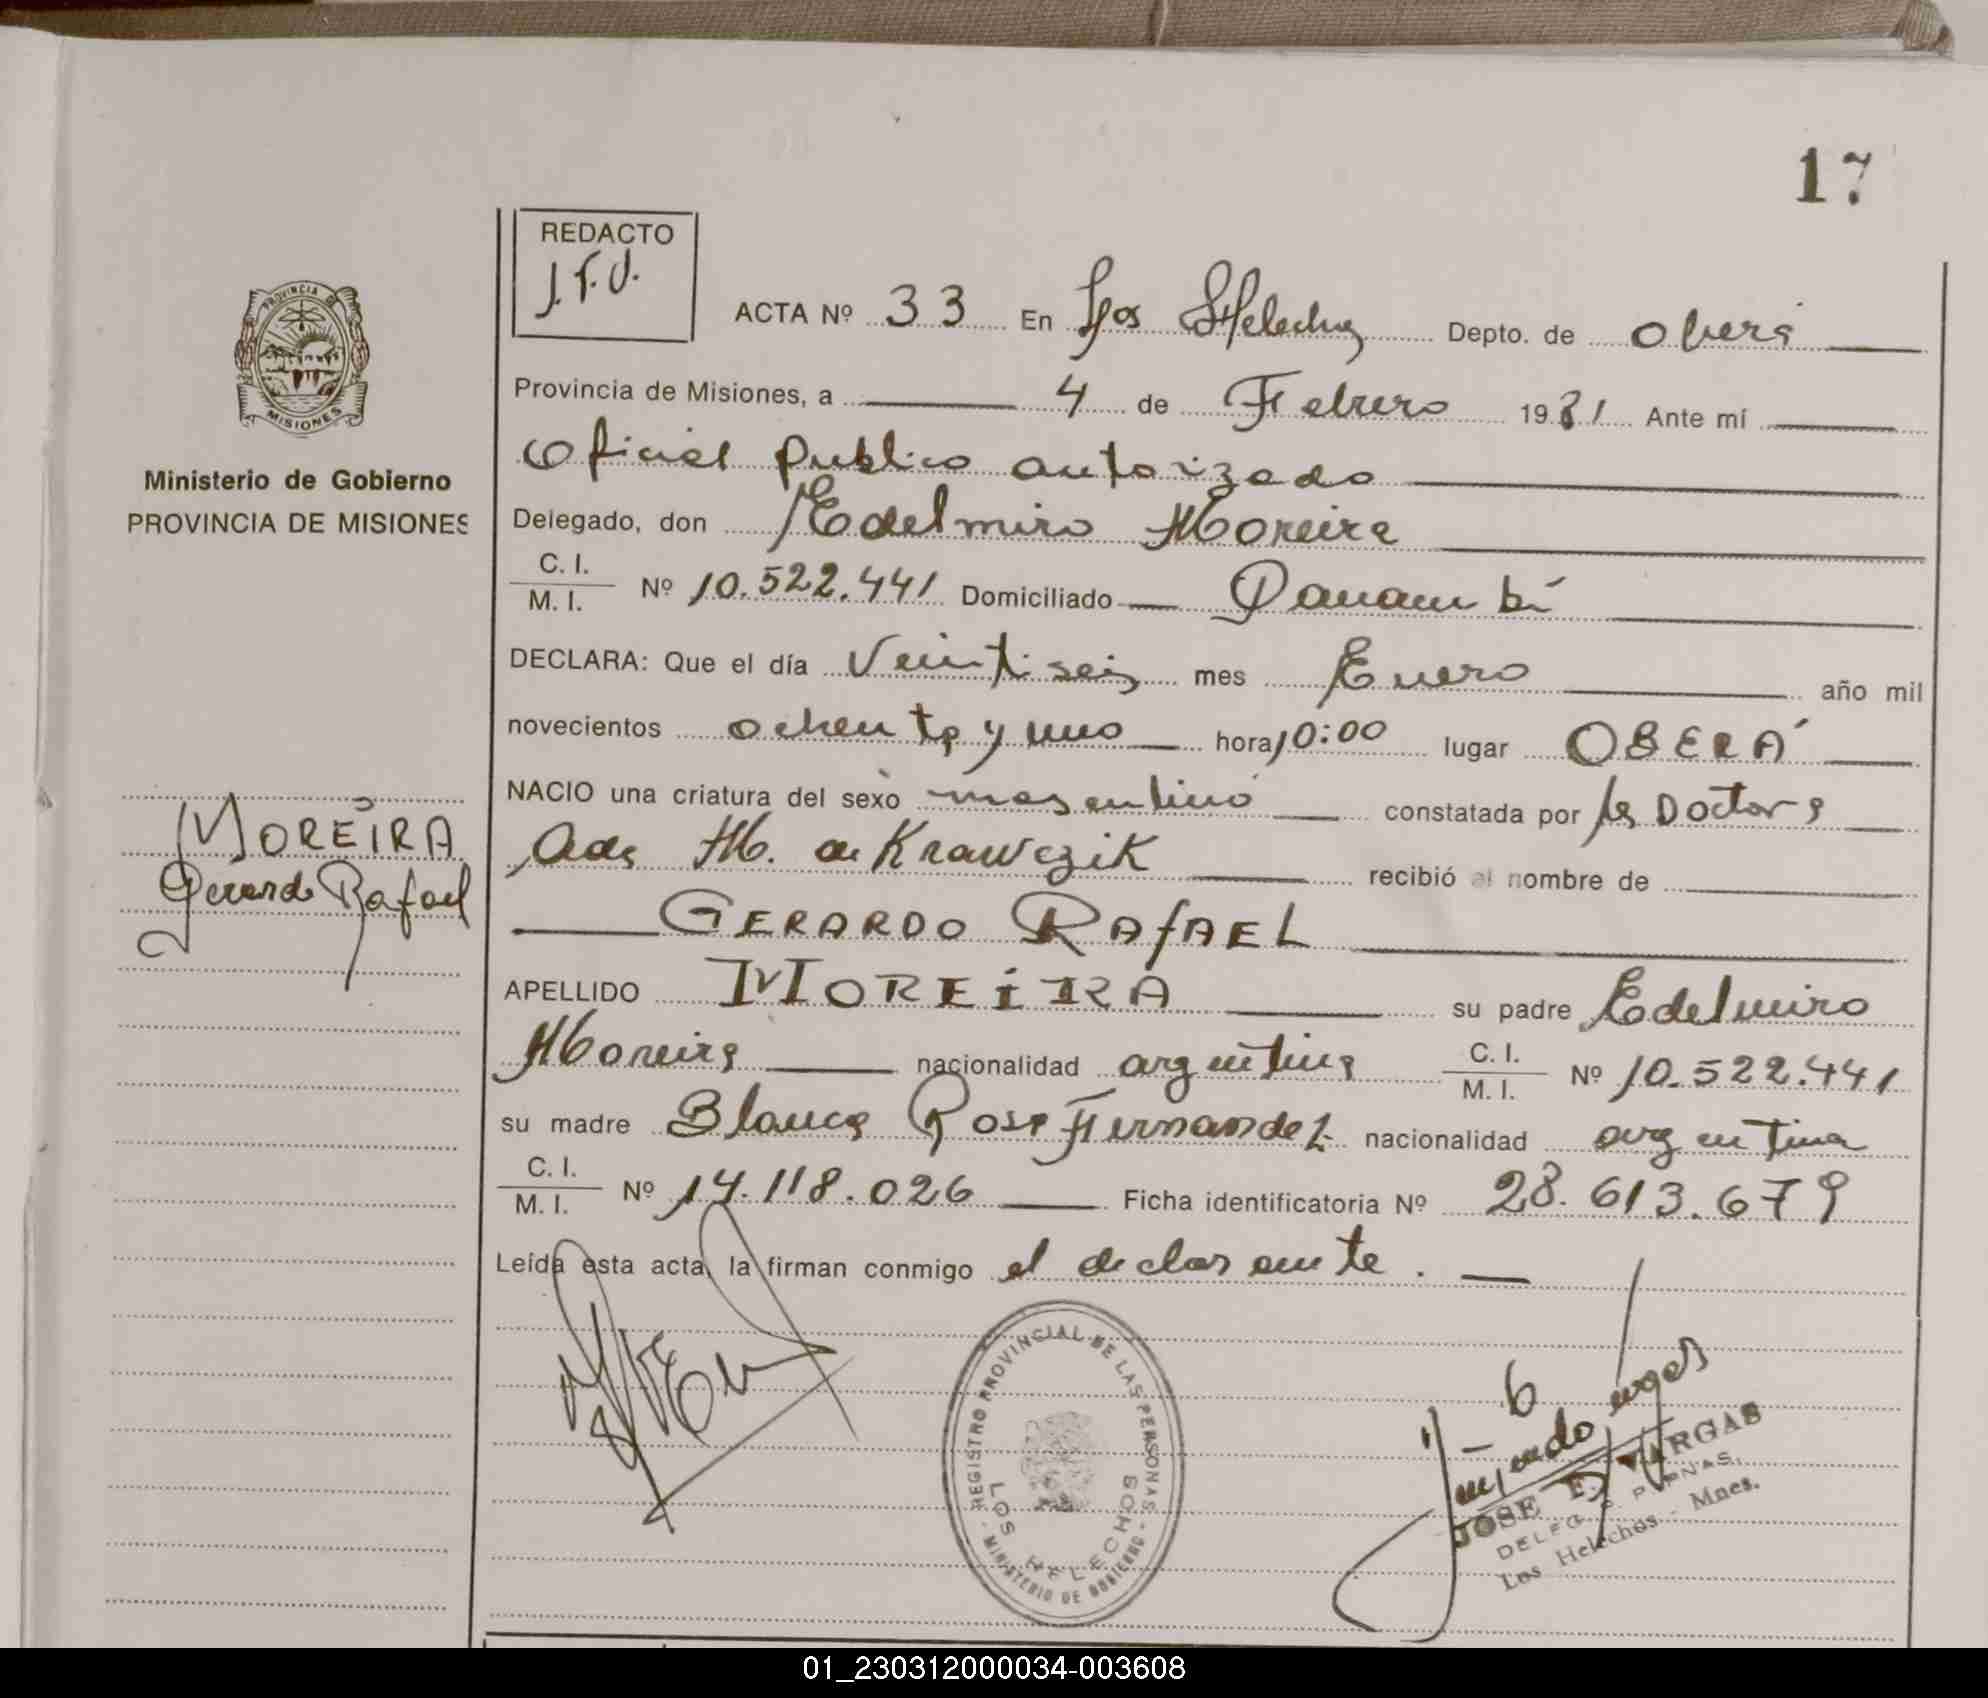 17
REDACTO
J.F.V.
PROVINCIA DE
MISIONES
Ministerio de Gobierno
PROVINCIA DE MISIONES
ACTA Nº 33 En Los Helechos Depto. de Oberá
Provincia de Misiones, a 4 de Febrero 1981 Ante mí
Oficial Publico autorizado
Delegado, don Edelmiro Moreira
C. I.
M. I. Nº 10.522.441 Domiciliado Panambí
DECLARA: Que el día Veintiseis mes Enero año mil
novecientos ochenta y uno hora 10:00 lugar OBERÁ
NACIO una criatura del sexo masculino constatada por la Doctora
Ada M. de Krawczik recibió el nombre de
GERARDO RAfAEL
MOREiRA
Gerardo Rafael
APELLIDO MOREiRA su padre Edelmiro
Moreira nacionalidad argentina C. I.
M. I. Nº 10.522.441
su madre Blanca Rosa Fernandez nacionalidad argentina
C. I.
M. I. Nº 14.118.026 Ficha identificatoria Nº 28.613.679
Leída esta acta, la firman conmigo el declarante.
REGISTRO PROVINCIAL DE LAS PERSONAS
LOS HELECHOS
MINISTERIO DE GOBIERNO
JOSE F. VARGAS
DELEG. R. P. PNAS.
Los Helechos - Mnes.
01_230312000034-003608